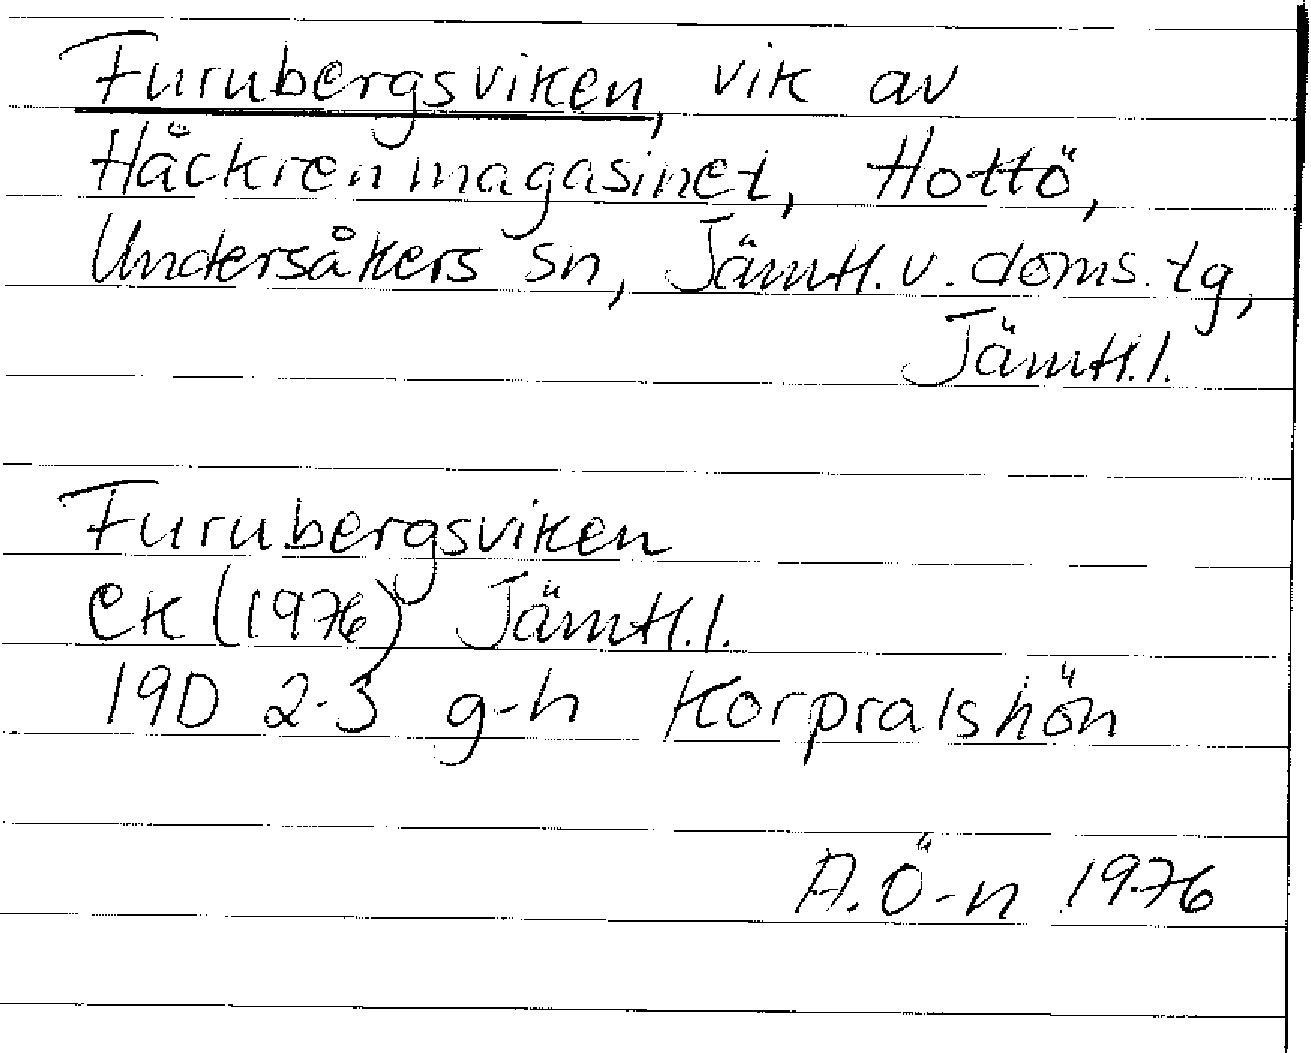 Furubergsviken, vik av
Håckrenmagasinet, Hottö,
Undersåkers sn, Jämtl. v. doms. tg,
Jämtl. l.
Furubergsviken
ek (1976) Jämtl. l.
19D 2-3 g-h Korpralshön
A. Ö-n 1976